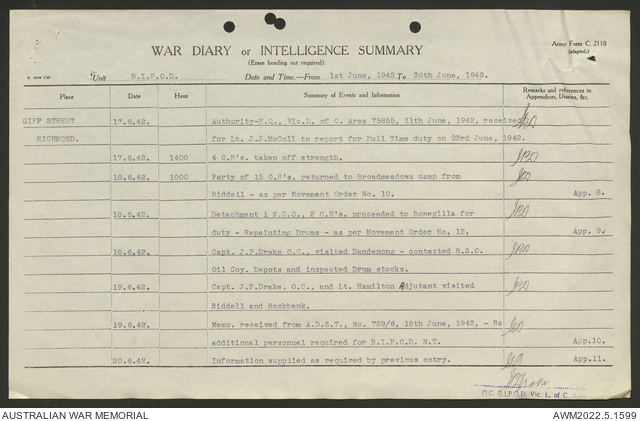 WAR DIARY or INTELLIGENCE SUMMARY
Army Form C. 2118
(adapted.)
(Erase heading not required).
Unit B.I.P.O.D. Date and Time.—From 1st June, 1942. To 30th June, 1942.
Place Date Hour Summary of Events and Information Remarks and references to Appendices, Diaries, &c.
GIPP STREET 17.6.42. Authority-H.Q., Vic.L. of C. Area 75855, 11th June, 1942, received
RICHMOND. for Lt. J.J.McColl to report for Full Time duty on 23rd June, 1942.
17.6.42. 1400 4 O.R's. taken off strength.
18.6.42. 1000 Party of 15 O.R's. returned to Broadmeadows camp from
Riddell - as per Movement Order No. 10. App. 8.
18.6.42. Detachment 1 N.C.O., 2 O.R's. proceeded to Bonegilla for
duty - Repainting Drums - as per Movement Order No. 12. App. 9.
18.6.42. Capt. J.P.Drake O.C., visited Dandenong - contacted R.S.O.
Oil Coy. Depots and inspected Drum stocks.
19.6.42. Capt. J.P.Drake. O.C., and Lt. Hamilton Adjutant visited
Riddell and Rockbank.
19.6.42. Memo. received from A.D.S.T., No. 759/6, 18th June, 1942, - Re
additional personnel required for B.I.P.O.D. N.T. App.10.
20.6.42. Information supplied as required by previous entry. App.11.
JPDrake Capt.
O.C. B.I.P.O.D. Vic. L. of C. Area
AUSTRALIAN WAR MEMORIAL AWM2022.5.1599